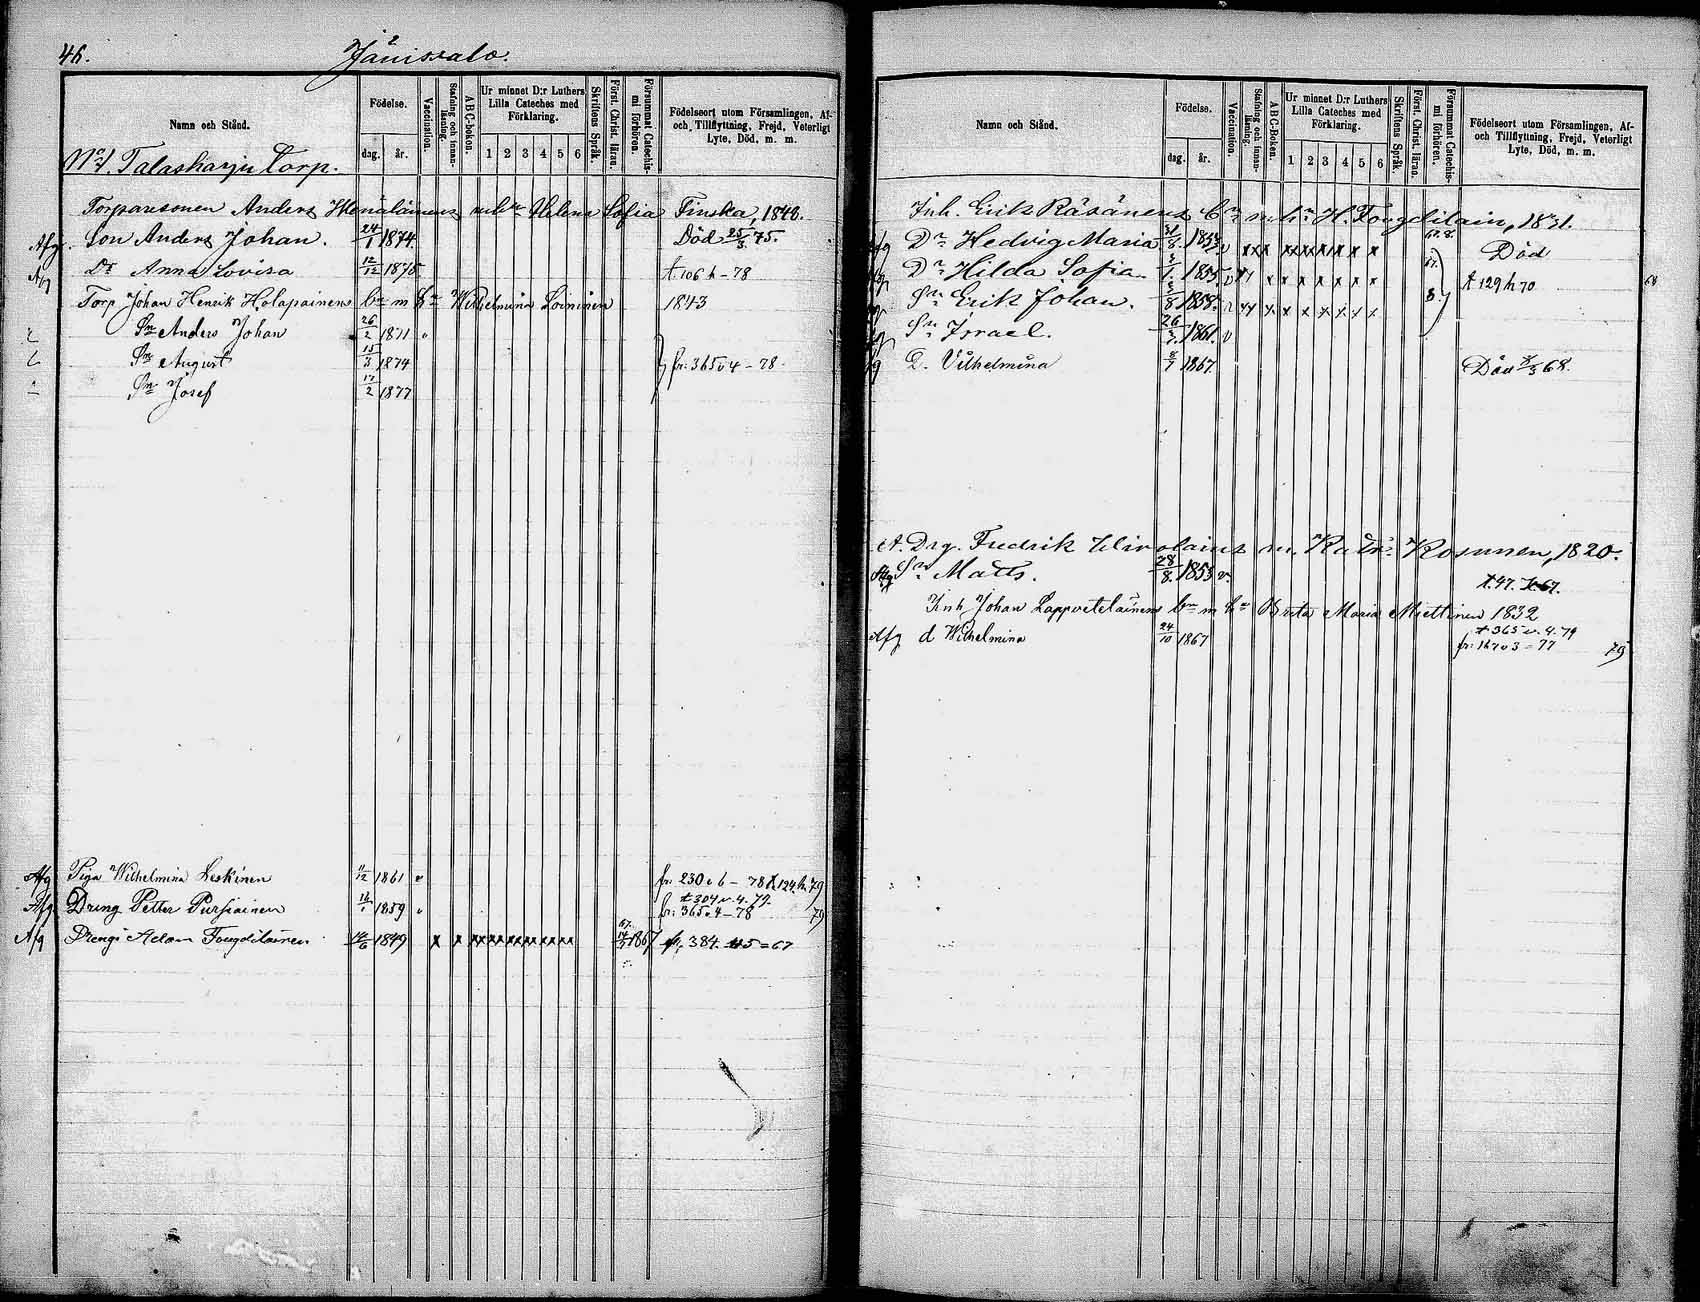 46.
Jänissalo.
2
Namn och Stånd.
Födelse.
dag. år.
Vaccination.
Stafning och innanläsning.
ABC-boken.
Ur minnet D:r Luthers Lilla Cateches med Förklaring.
1 2 3 4 5 6
Skriftens Språk.
Först. Christ. läran.
Försummat Catechismi förhören.
Födelseort utom Församlingen, Af- och Tillflyttning, Frejd, Veterligt Lyte, Död, m. m.
No 1. Talasharju Torp.
Torparesonen Anders m h:u Helena Sofia Finska, 1848.
Afg. Son Anders Johan. 24/1 1874. Död 25/3 75.
Afg D:r Anna Lovisa 12/12 1875 t. 106 h - 78
Torp Johan Henrik Holapainens b:n m h:u Wilhelmina Loininen 1843
S:n Anders Johan 26/2 1871 v
S:n August 15/3 1874 fr: 365 v 4 - 78
S:n Josef 17/2 1877
Afg Piga Wilhelmina Leskinen 11/12 1861 v fr. 230 v 6 - 78 t 124 h 79
Afg Dreng Petter Pursiainen 1859 v t 304 v. 4. 79. fr: 365 v 4 - 78 79
Afg Drengi Adam Fougdilainen 1849 x x xx xx xx xx xx xx 67. 1867 fr. 384. 5 = 67
Namn och Stånd.
Födelse.
dag. år.
Vaccination.
Stafning och innanläsning.
ABC-Boken.
Ur minnet D:r Luthers Lilla Cateches med Förklaring.
1 2 3 4 5 6
Skriftens Språk.
Först. Christ. läran.
Försummat Catechismi förhören.
Födelseort utom Församlingen, Af- och Tillflyttning, Frejd, Veterligt Lyte, Död, m. m.
Inh. Erik Räsänens b:n m h:u H. Fougdilain, 1831.
Afg D:r Hedvig Maria 31/8. 1853 v xxx xx xx xx x x x Död
D:r Hilda Sofia. 1. 1855 v x x x x x x x t 129 h 70
S:n Erik Johan. 8 1858. v xx x x x x x x
S:n Israel. 26 1861. v
D. Vilhelmina 1867. Död 68.
A. Drg. Fredrik m. Kosunen, 1820.
Afg S:n Matts. 28/8. 1853 v. t. 47. 67.
Inh Johan Lappvetelainens b:n m h:u Brita Maria Miettinen 1832
Afg d Wilhelmina 24/10 1867 t 365 v. 4. 79 fr: 167 v 3 = 77 79